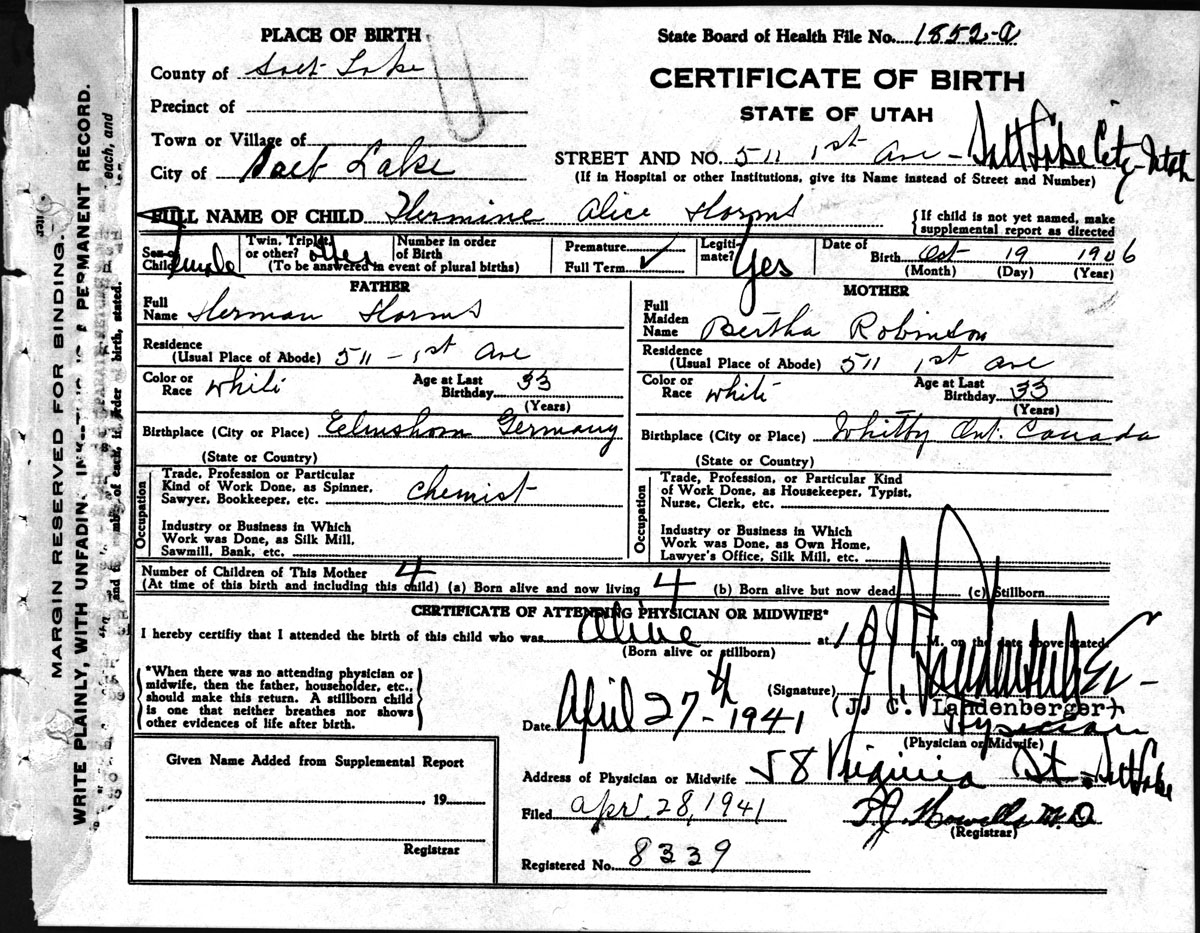 PLACE OF BIRTH
State Board of Health File No. 1852-a
County of Salt Lake
CERTIFICATE OF BIRTH
Precinct of
STATE OF UTAH
Town or Village of
STREET AND NO. 511 1st Ave - Salt Lake City, Utah
City of Salt Lake
(If in Hospital or other Institutions, give its Name instead of Street and Number)
FULL NAME OF CHILD Hermine Alice Harms
{If child is not yet named, make supplemental report as directed
Sex of Child Female
Twin, Triplet, or other?
Number in order of Birth
(To be answered in event of plural births)
Premature
Full Term ✓
Legitimate? Yes
Date of Birth Oct 19 1906
(Month) (Day) (Year)
FATHER
Full Name Herman Harms
Residence (Usual Place of Abode) 511 - 1st Ave
Color or Race White
Age at Last Birthday 33
(Years)
Birthplace (City or Place) Elmshorn Germany
(State or Country)
Occupation
Trade, Profession or Particular Kind of Work Done, as Spinner, Sawyer, Bookkeeper, etc. Chemist
Industry or Business in Which Work was Done, as Silk Mill, Sawmill, Bank, etc.
MOTHER
Full Maiden Name Bertha Robinson
Residence (Usual Place of Abode) 511 1st Ave
Color or Race White
Age at Last Birthday 33
(Years)
Birthplace (City or Place) Whitby Ont. Canada
(State or Country)
Occupation
Trade, Profession, or Particular Kind of Work Done, as Housekeeper, Typist, Nurse, Clerk, etc.
Industry or Business in Which Work was Done, as Own Home, Lawyer's Office, Silk Mill, etc.
Number of Children of This Mother 4
(At time of this birth and including this child) (a) Born alive and now living 4 (b) Born alive but now dead (c) Stillborn
CERTIFICATE OF ATTENDING PHYSICIAN OR MIDWIFE*
I hereby certify that I attended the birth of this child who was Alive at 1 M. on the date above stated.
(Born alive or stillborn)
*When there was no attending physician or
midwife, then the father, householder, etc.,
should make this return. A stillborn child
is one that neither breathes nor shows
other evidences of life after birth.
(Signature) J C Landenberger
(J. C. Landenberger)
Date April 27-th 1941
Physician
(Physician or Midwife)
Given Name Added from Supplemental Report
, 19
Registrar
Address of Physician or Midwife 58 Virginia St. Salt Lake
Filed Apr. 28, 1941
T. J. Howells M.D
(Registrar)
Registered No. 8339
MARGIN RESERVED FOR BINDING.
WRITE PLAINLY, WITH UNFADING INK—THIS IS A PERMANENT RECORD.